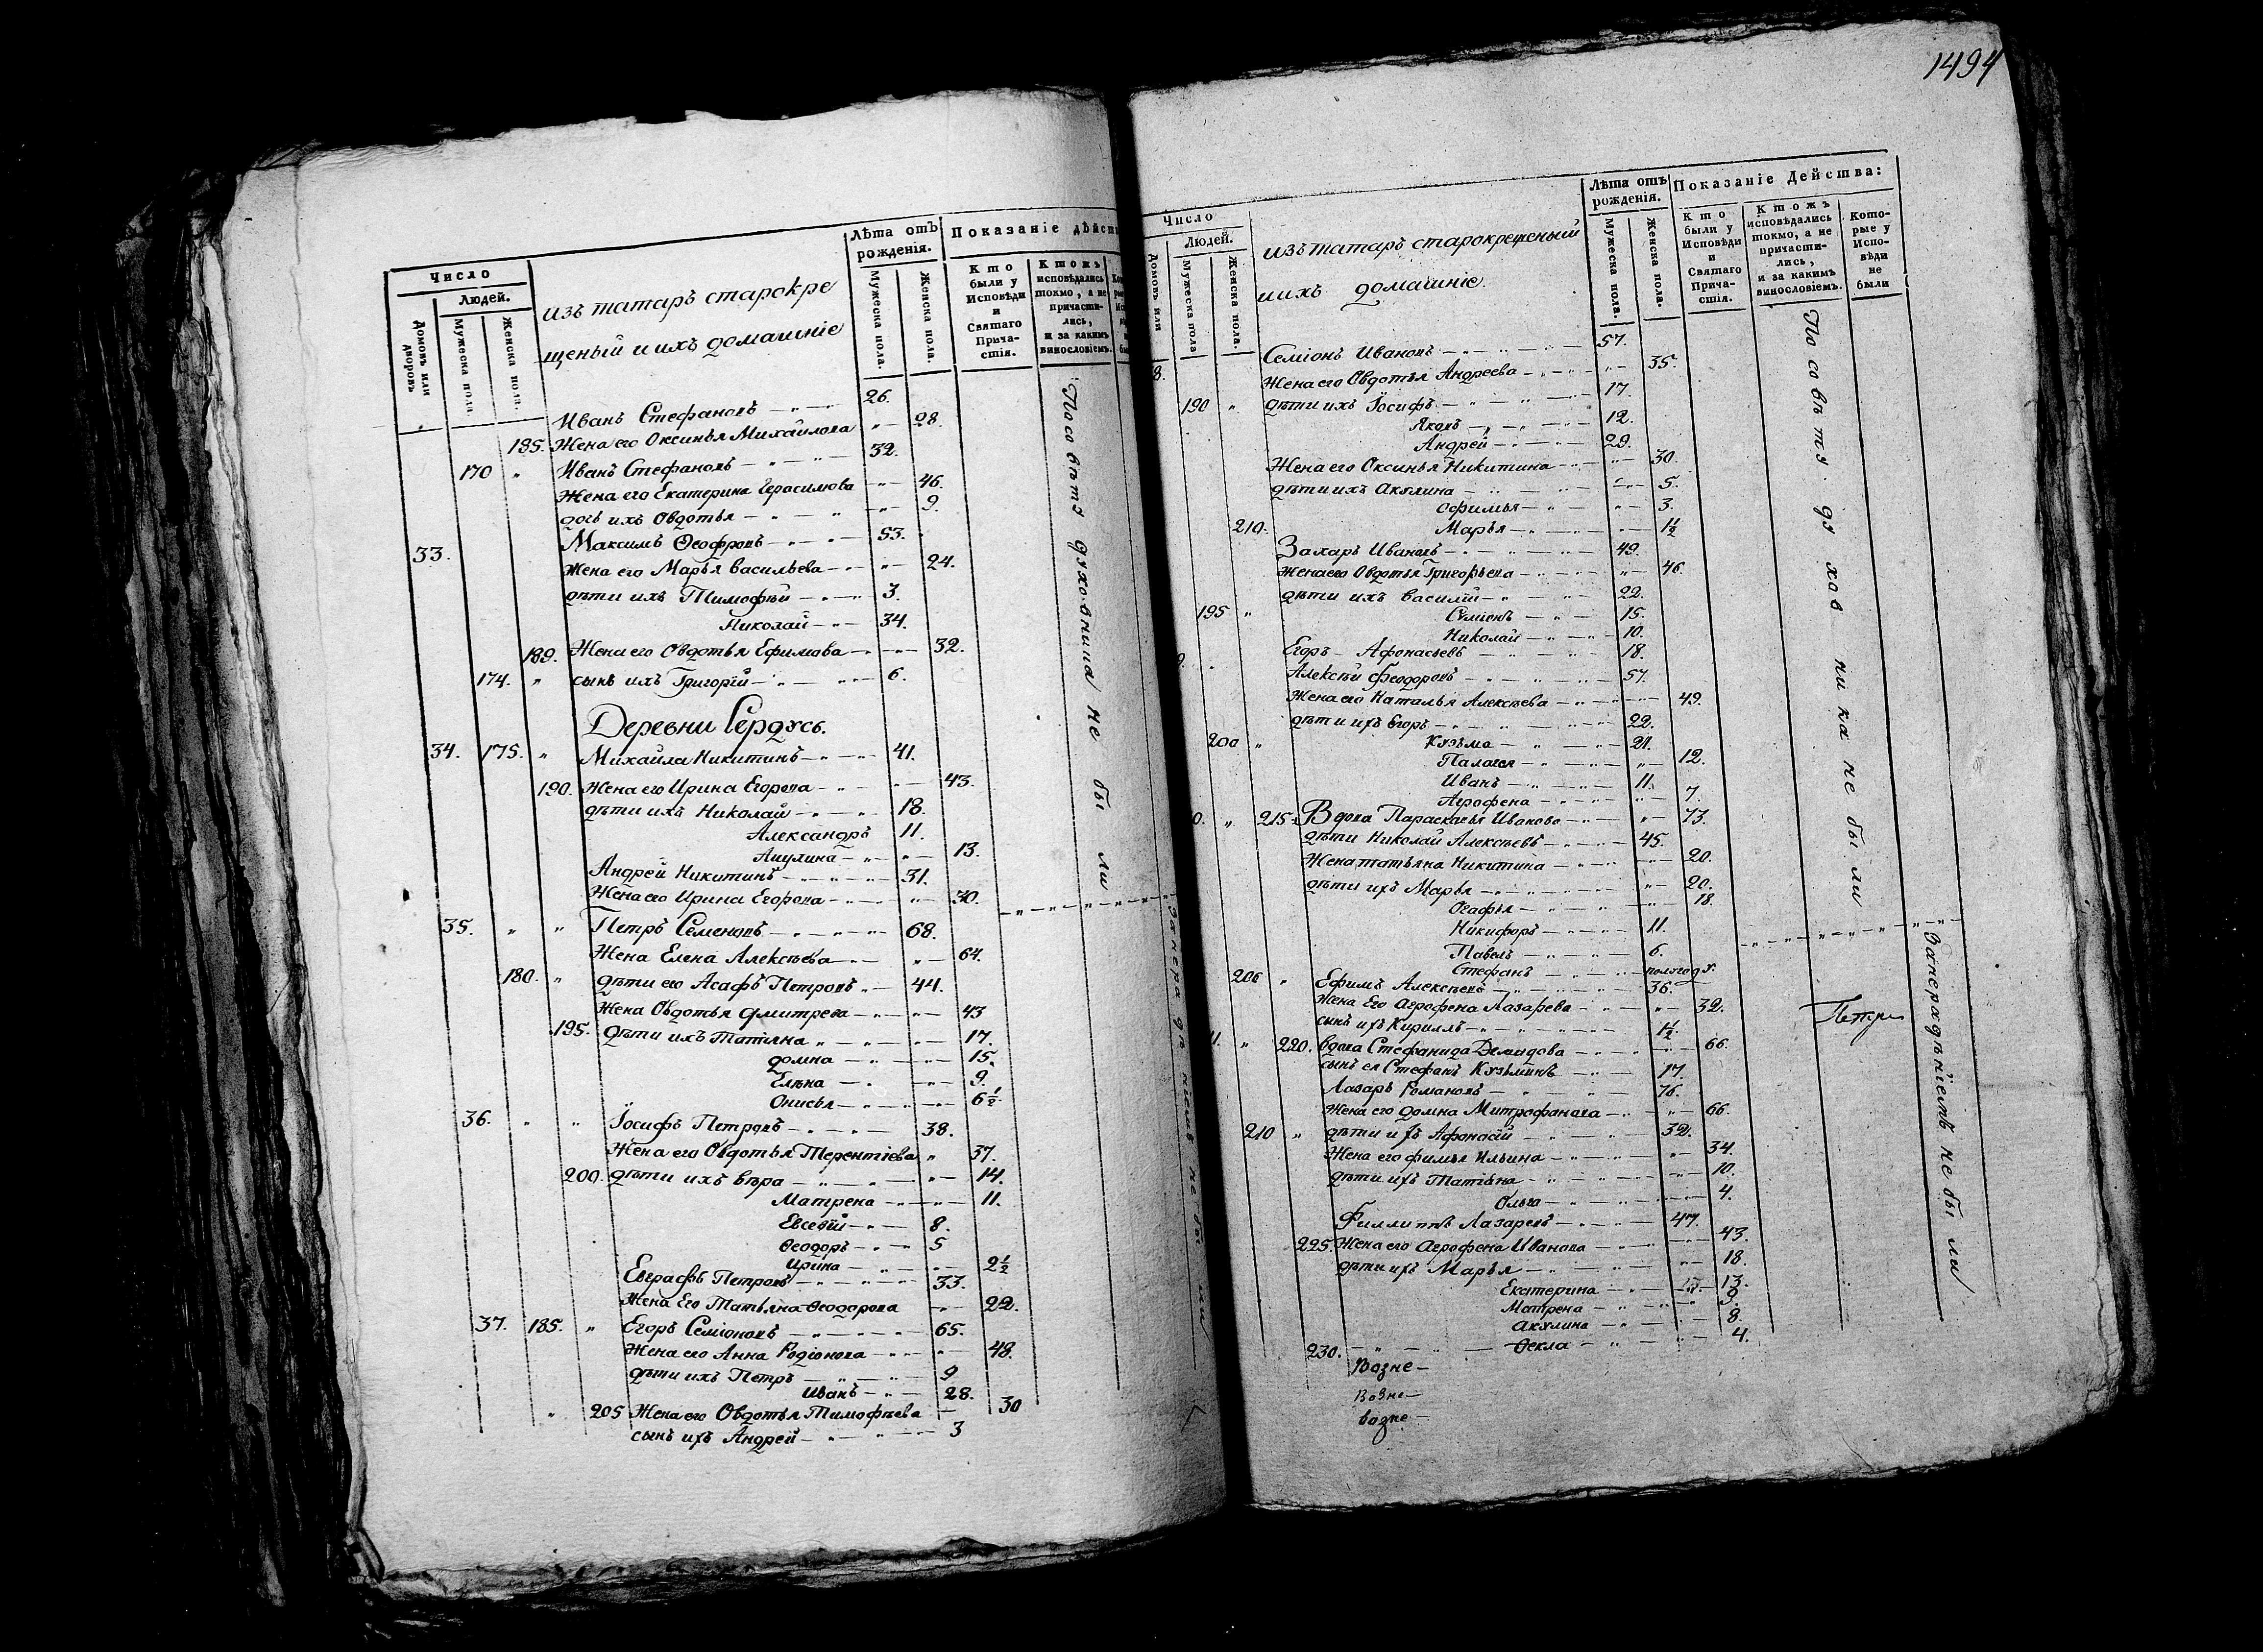 1494
Число
Людей.
Домовъ или дворовъ
Мужеска пола.
Женска пола.
изъ татаръ старокре
щеный и ихъ домашніе
Лѣта отъ рожденія.
Мужеска пола.
Женска пола.
Показаніе дѣйст
Кто были у Исповѣди и Святаго Прича-стія.
Ктожъ исповѣдались токмо, а не причасти-лись, и за какимъ винословіемъ.
Иванъ Стефановъ 26.
185. Жена его Оксинья Михайлова 28.
170 Иванъ Стефановъ 32.
Жена его Екатерина Герасимова 46.
дочь ихъ Овдотья 9.
33. Максимъ Ѳеофровъ 53.
Жена его Марья Васильева 24.
дѣти ихъ Тимофѣй 3.
Николай 34.
189. Жена его Овдотья Ефимова 32.
174. сынъ ихъ Григорій 6.
Деревни Сердусь.
34. 175. Михайла Никитинъ 41.
190. Жена его Ирина Егорова 43.
дѣти ихъ Николай 18.
Александръ 11.
Акулина 13.
Андрей Никитинъ 31.
Жена его Ирина Егорова 30.
35. Петръ Семеновъ 68.
Жена Елена Алексѣева 64.
180. дѣти его Асафъ Петровъ 44.
Жена Овдотья Дмитрева 43
195. дѣти ихъ Татіяна 17.
домна 15.
Елѣна 9.
Онисья 6½
36. Іосифъ Петровъ 38.
Жена его Овдотья Терентіева 37.
200. дѣти ихъ Вѣра 14.
Матрена 11.
Евсевій 8.
Ѳеодоръ 5
Ирина 2½
Евграфъ Петровъ 33.
Жена Его Татьяна Ѳеодорова 22.
37. 185. Егоръ Семіоновъ 65.
Жена его Анна Родіонова 48.
дѣти ихъ Петръ 9
Иванъ 28.
205 Жена его Овдотья Тимофѣева 30
сынъ ихъ Андрей 3
По совѣту духовника не были
Число
Людей.
Домовъ или
Мужеска пола
Женска пола.
изъ татаръ старокрещеный
и ихъ домашніе.
Лѣта отъ рожденія.
Мужеска пола.
Женска пола.
Показаніе Действа:
Кто были у Исповѣди и Святаго Прича-стія.
Ктожъ исповѣдались токмо, а не причасти-лись, и за какимъ винословіемъ.
Кото-рые у Испо-вѣди не были
8. Семіонъ Ивановъ 57.
Жена его Овдотья Андреева 35.
190 дѣти ихъ Іосифъ 17.
Яковъ 12.
Андрей 29.
Жена его Оксинья Никитина 30.
дѣти ихъ Акулина 5.
Офимья 3.
210. Марья 1½
Захаръ Ивановъ 49.
Жена его Овдотья Григорьева 46.
дѣти ихъ Василій 22.
195 Семіонъ 15.
Николай 10.
9. Егоръ Афонасьевъ 18.
Алексѣй Феодоровъ 57.
Жена его Наталья Алексѣева 49.
дѣти ихъ Егоръ 22.
200 Кузьма 21.
Палагея 12.
Иванъ 11.
Агрофена 7.
0. 215. Вдова Парасковья Иванова 73.
дѣти Николай Алексѣевъ 45.
Жена татьяна Никитина 20.
дѣти ихъ Марья 20.
Огафья 18.
Никифоръ 11.
Павелъ 6.
Стефанъ полугоду.
206 Ефимъ Алексѣевъ 36.
Жена Его Агрофена Лазарева 32.
сынъ ихъ Кирилъ 1½
1. 220. вдова Стефанида Демидова 66.
сынъ ея Стефанъ Кузьминъ 17.
Лазарь Романовъ 76.
Жена его Домна Митрофанова 66.
210 дѣти ихъ Афонасій 32.
Жена его фимья Ильина 34.
дѣти ихъ Татіяна 10.
Ольга 4.
Филлиппъ Лазаревъ 47.
225. Жена его Агрофена Иванова 43.
дѣти ихъ Марья 18.
Екатерина 13.
Матрена 9.
Акулина 8.
230. Ѳекла 4.
Возне
Возне
возне
По совѣту духовника не были
Занерадѣніемъ не были